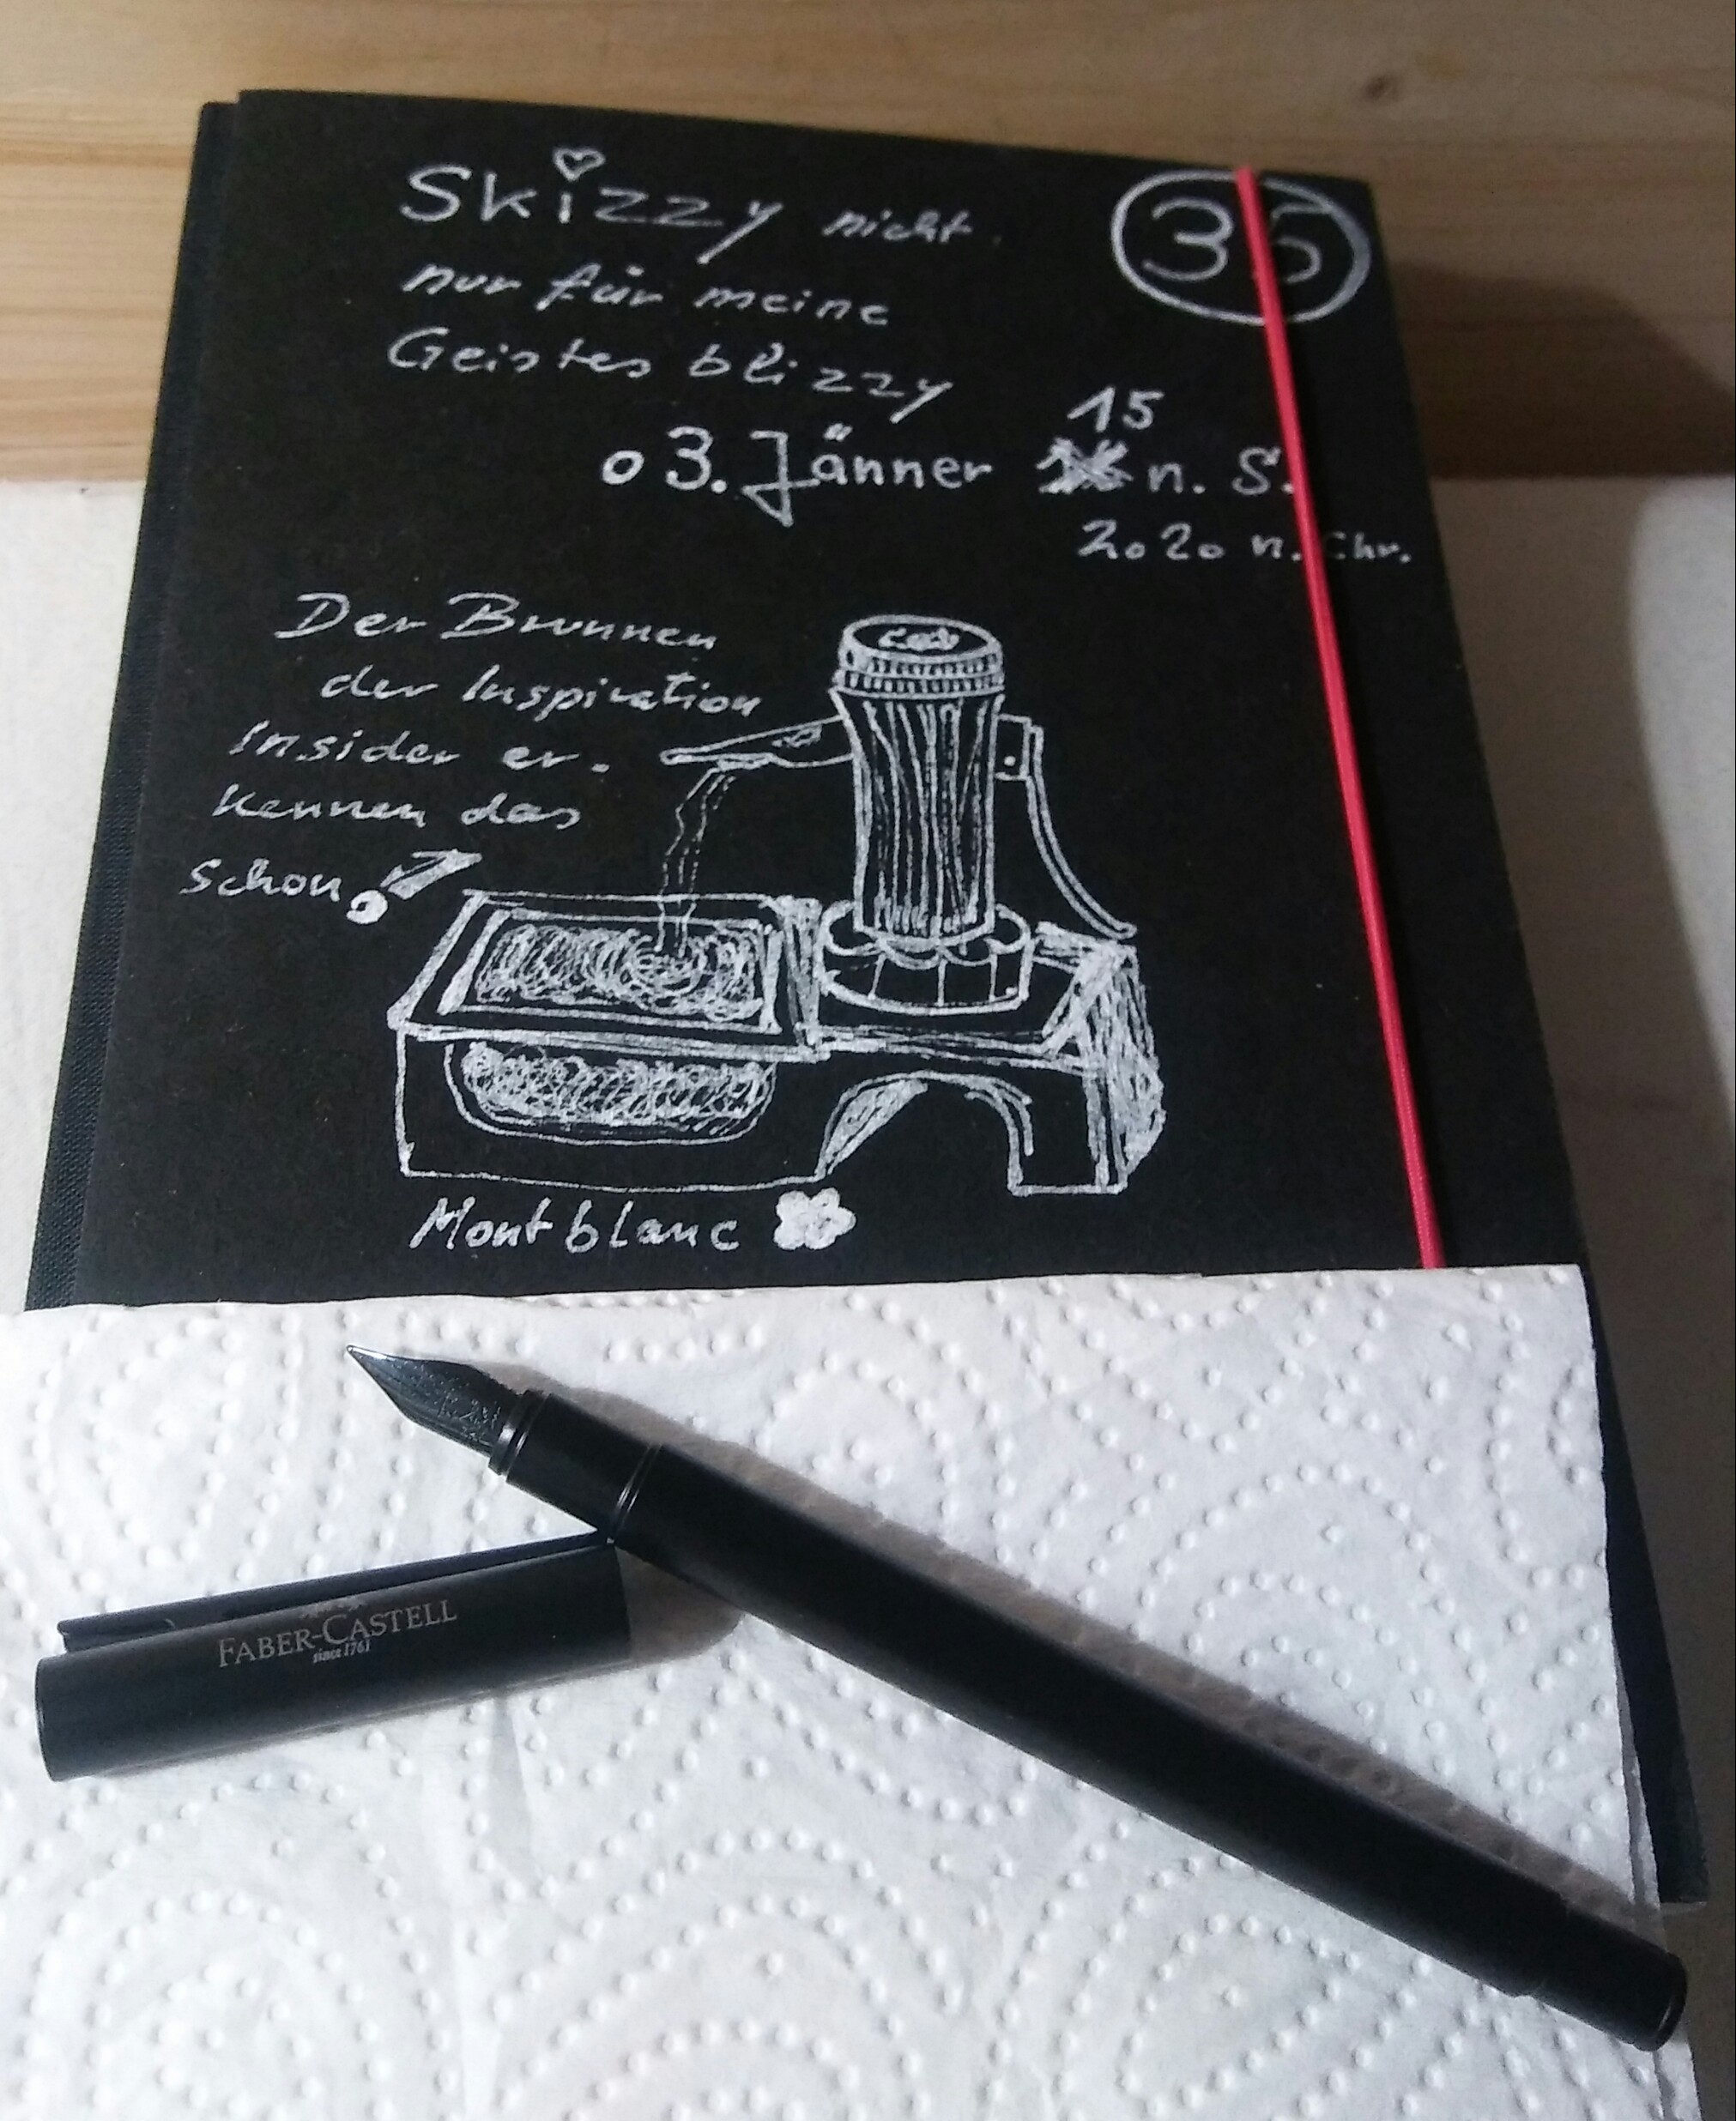 Skizzy nicht
nur für meine
Geistesblizzy
35
03. Jänner 15 n. S.
2020 n. Chr.
Der Brunnen
der Inspiration
Insider er-
kennen das
schon!
Montblanc
FABER-CASTELL
since 1761